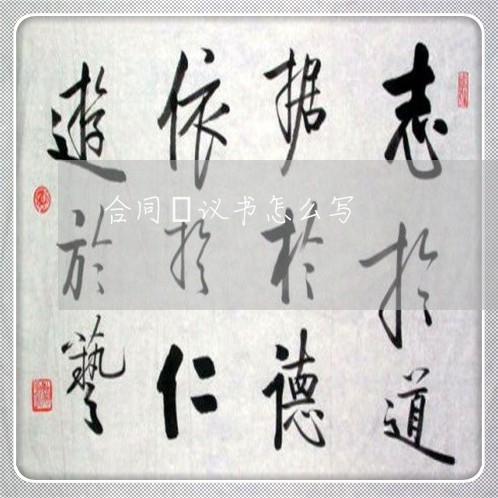 志於道
据於德
依於仁
遊於藝
合同□议书怎么写